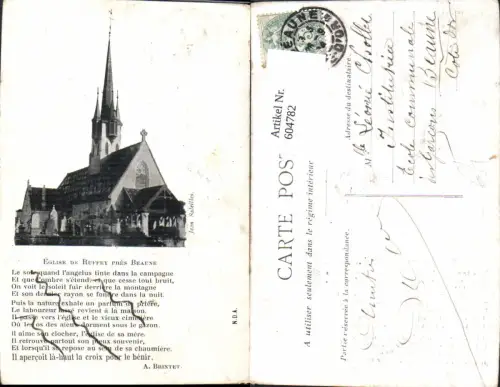 Jean Saleilles.
EGLISE DE RUFFEY PRÈS BEAUNE
Le soir quand l'angelus tinte dans la campagne
Et que l'ombre s'étend que cesse tout bruit,
On voit le soleil fuir derrière la montagne
Et son dernier rayon se fondre dans la nuit.
Puis la nature exhale un parfum de prière,
Le laboureur lassé revient à la maison.
Il passe vers l'église et le vieux cimetière
Où les os des aïeux dorment sous le gazon.
Il aime son clocher, l'église de sa mère
Il retrouve partout son pieux souvenir,
Et lorsqu'il se repose au soir de sa chaumière.
Il aperçoit là-haut la croix pour le bénir.
A. BRINTET
N.D.A.
BEAUNE
CARTE POS
A utiliser seulement dans le régime intérieur
Partie réservée à la correspondance.
Adresse du destinataire.
Artikel Nr.
604782
Léonie
Institutrice
École communale
de Garçons Beaune
Côte d'or
Amitiés